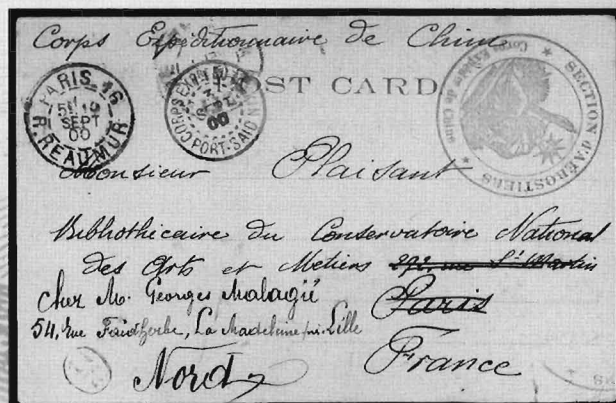 Corps Expéditionnaire de Chine
POST CARD
PARIS 16
5E 10
SEPT
00
R. REAUMUR
CORPS EXPEDre
SEPT
00
PORT-SAID
SECTION D'AEROSTIERS
Corps de Chine
Monsieur Plaisant
Bibliothécaire du Conservatoire National
des Arts et Métiers 292, rue St Martin
Chez M. Georges Malagié Paris
54, rue Faidherbe, La Madeleine près Lille
Nord France